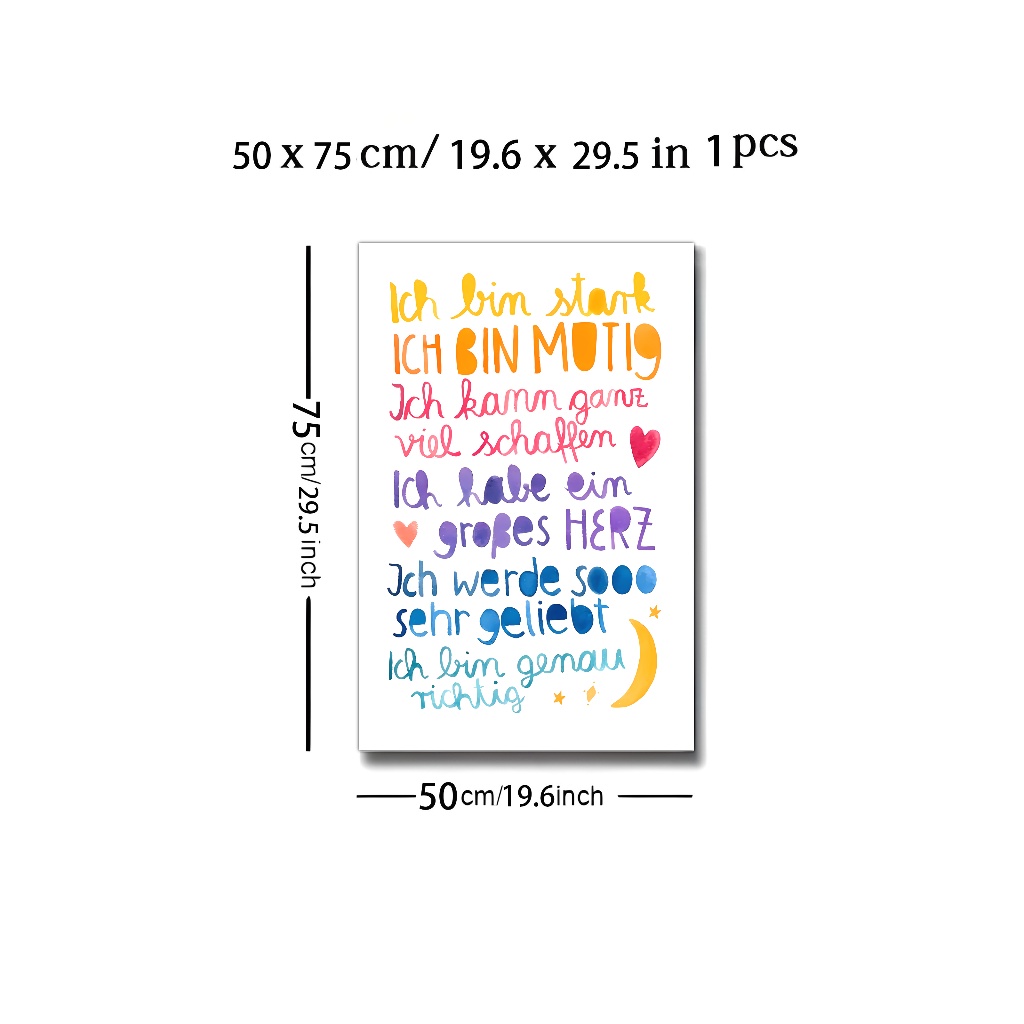 50 x 75 cm/ 19.6 x 29.5 in 1 pcs
75cm/29.5 inch
Ich bin stark
ICH BIN MUTIG
Ich kann ganz
viel schaffen
Ich habe ein
großes HERZ
Ich werde sooo
sehr geliebt
Ich bin genau
richtig
50cm/19.6inch